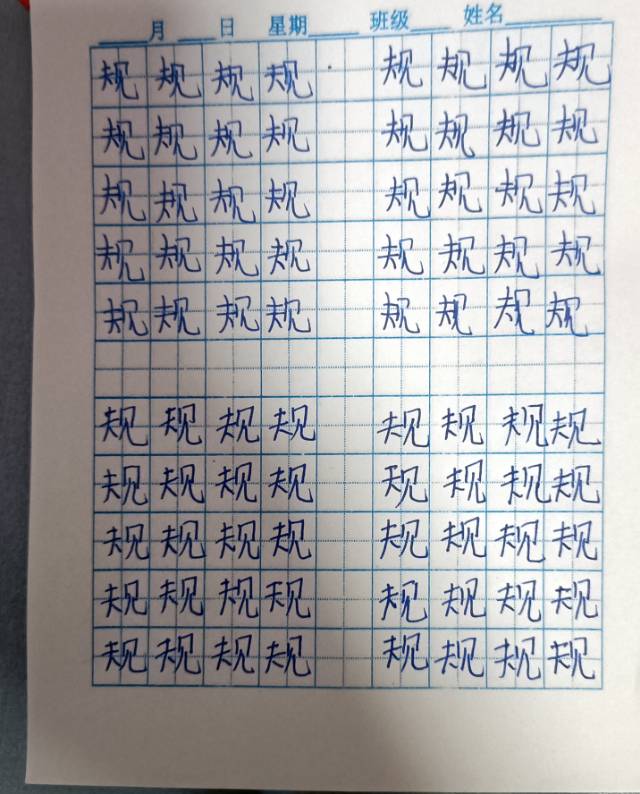 月 日 星期 班级 姓名
规 规 规 规 规 规 规 规
规 规 规 规 规 规 规 规
规 规 规 规 规 规 规 规
规 规 规 规 规 规 规 规
规 规 规 规 规 规 规 规
规 规 规 规 规 规 规 规
规 规 规 规 规 规 规 规
规 规 规 规 规 规 规 规
规 规 规 规 规 规 规 规
规 规 规 规 规 规 规 规